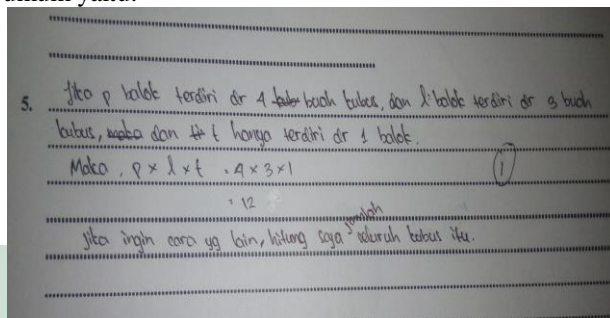 5. Jika p balok terdiri dr 4 buah kubus, dan l balok terdiri dr 3 buah
kubus, dan t hanya terdiri dr 1 balok.
Maka, p x l x t = 4 x 3 x 1
1
= 12
Jika ingin cara yg lain, hitung saja jumlah seluruh kubus itu.